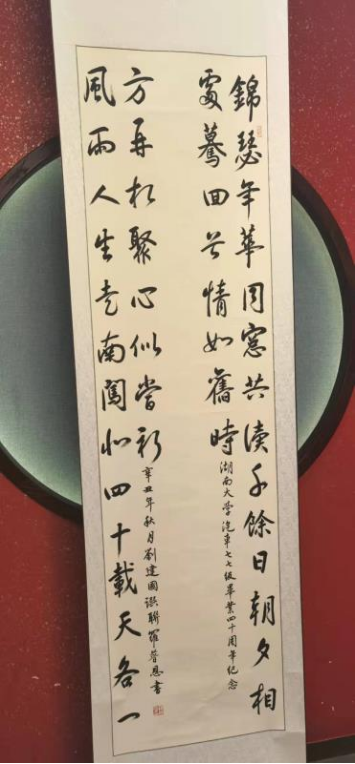 錦瑟年華同窗共讀千餘日朝夕相
處驀回首情如舊時
湖南大學汽車七七級畢業四十周年紀念
風雨人生走南闖北四十載天各一
方再相聚心似當初
辛丑年秋月劉建國撰聯羅恩書